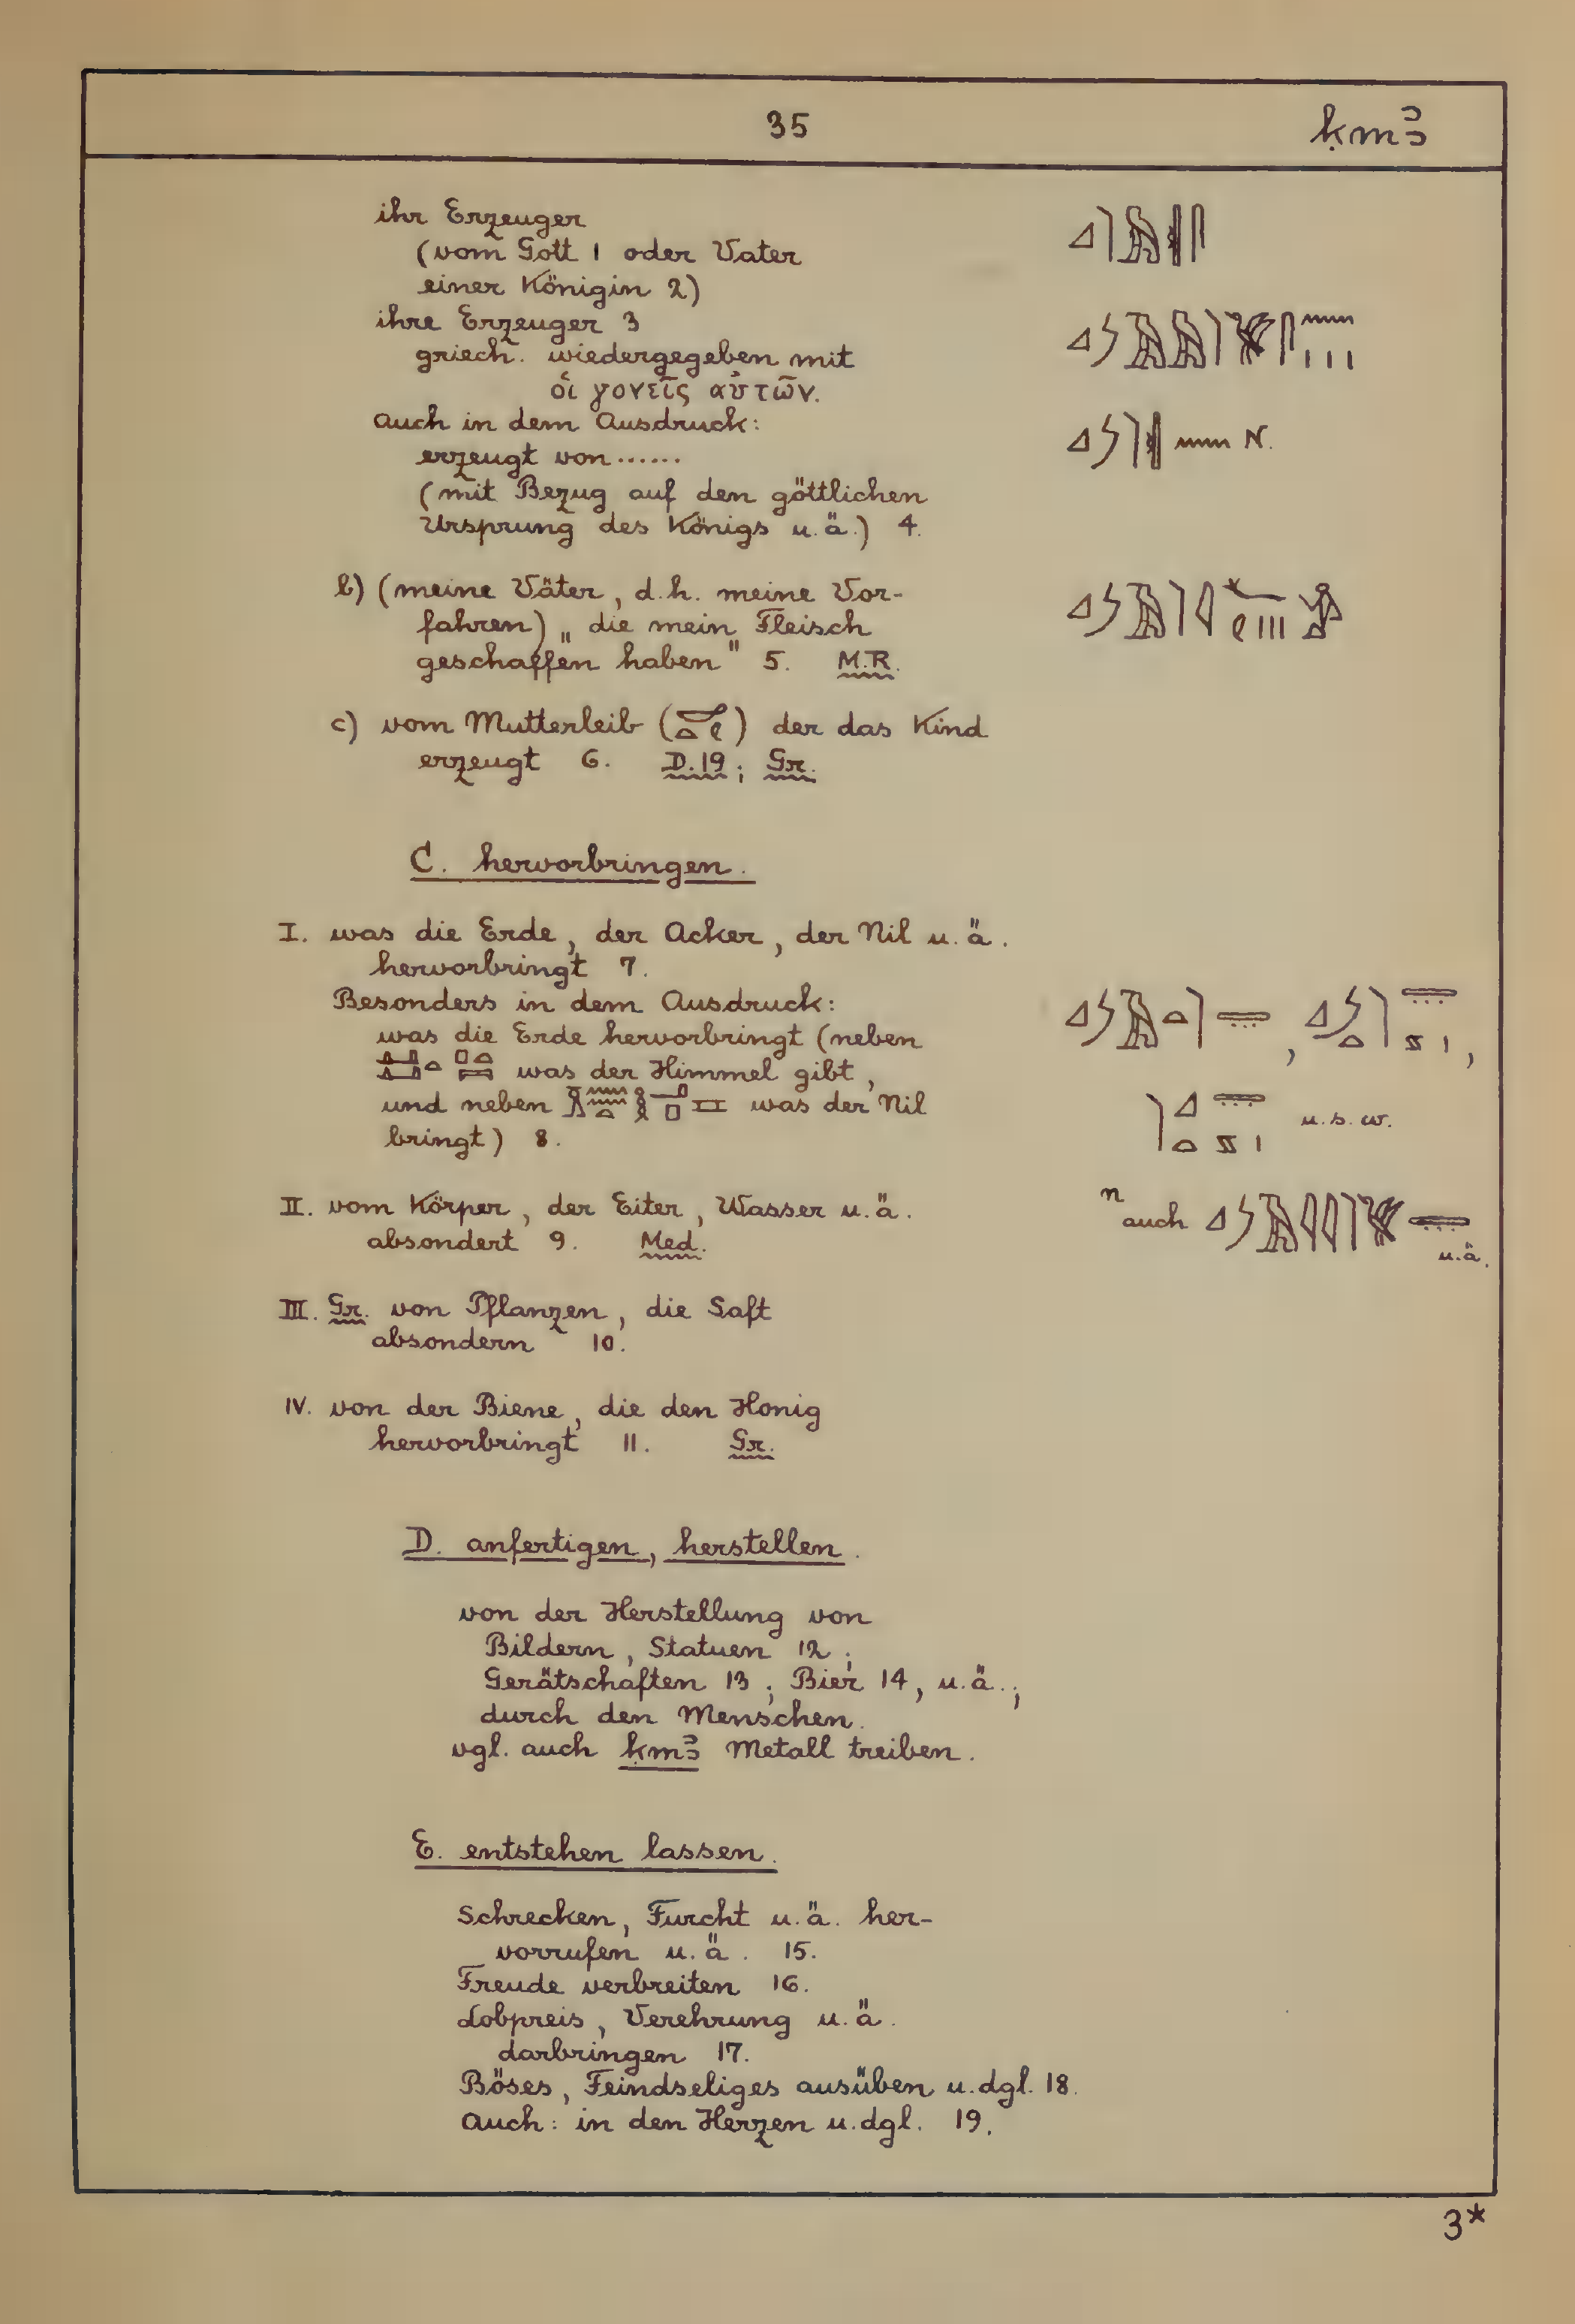 35
ḳmꜣ
ihr Erzeuger
(vom Gott 1 oder Vater
einer Königin 2)
ihre Erzeuger 3
griech. wiedergegeben mit
οἱ γονεῖς αὐτῶν.
Auch in dem Ausdruck:
erzeugt von......
N.
(mit Bezug auf den göttlichen
Ursprung des Königs u.ä.) 4.
b) (meine Väter, d.h. meine Vor-
fahren) „die mein Fleisch
geschaffen haben" 5. M.R.
c) vom Mutterleib ( ) der das Kind
erzeugt 6. D.19; Gr.
C. hervorbringen.
I. was die Erde, der Acker, der Nil u.ä.
hervorbringt 7.
Besonders in dem Ausdruck:
was die Erde hervorbringt (neben
was der Himmel gibt,
und neben was der Nil
u.s.w.
bringt) 8.
II. vom Körper, der Eiter, Wasser u.ä.
n auch
absondert 9. Med.
u.ä.
III. Gr. von Pflanzen, die Saft
absondern 10.
IV. von der Biene, die den Honig
hervorbringt 11. Gr.
D. anfertigen, herstellen.
von der Herstellung von
Bildern, Statuen 12;
Gerätschaften 13; Bier 14, u.ä.;
durch den Menschen.
vgl. auch ḳmꜣ Metall treiben.
E. entstehen lassen.
Schrecken, Furcht u.ä. her-
vorrufen u.ä. 15.
Freude verbreiten 16.
Lobpreis, Verehrung u.ä.
darbringen 17.
Böses, Feindseliges ausüben u.dgl. 18.
Auch: in den Herzen u.dgl. 19.
3*